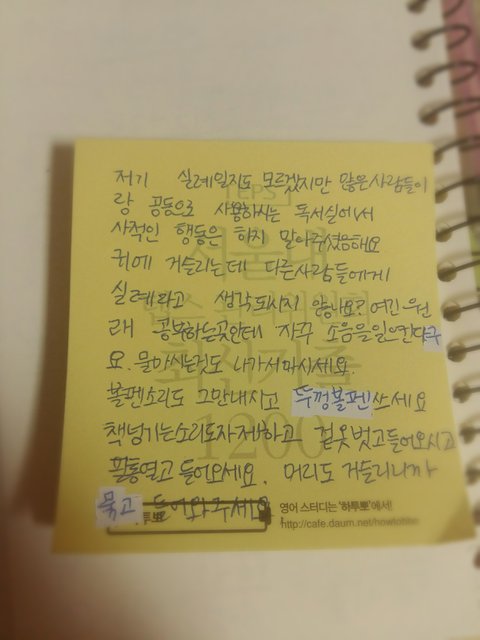 저기 실례일지도 모르겠지만 많은사람들이
랑 공동으로 사용하시는 독서실에서
사적인 행동은 하지 말아주셨음해요
귀에 거슬리는데 다른사람들에게
실례라고 생각되시지 않아요? 여긴 원
래 공부하는곳인데 자꾸 소음을일으킨다구
요. 물마시는것도 나가서마시세요.
볼펜소리도 그만내시고 뚜껑볼펜쓰세요
책넘기는소리도자제하고 겉옷벗고들어오시고
필통열고 들어오세요. 머리도 거슬리니까
묶고 들어와주세요
TEPS
서울대
최신기출
1200
영어 스터디는 '하투뽀'에서!
http://cafe.daum.net/howtohtoo